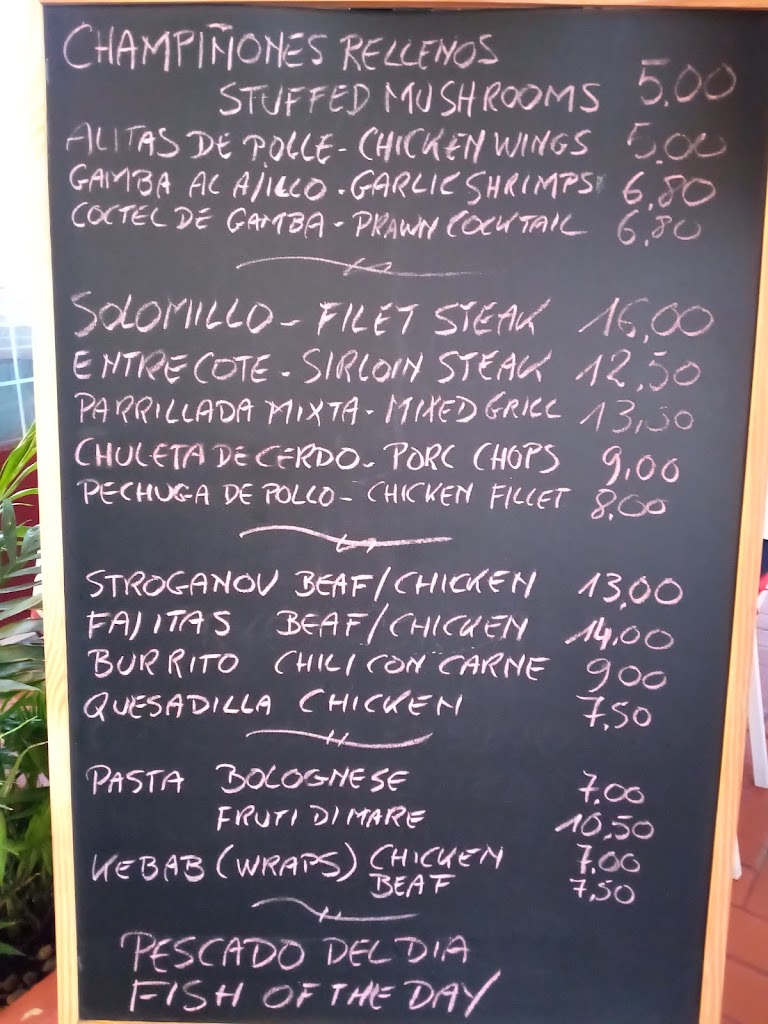 CHAMPIÑONES RELLENOS
STUFFED MUSHROOMS 5.00
ALITAS DE POLLE - CHICKEN WINGS 5.00
GAMBA AL AJILLO - GARLIC SHRIMPS 6,80
COCTEL DE GAMBA - PRAWN COCKTAIL 6,80
SOLOMILLO - FILET STEAK 16,00
ENTRECOTE - SIRLOIN STEAK 12,50
PARRILLADA MIXTA - MIXED GRILL 13,50
CHULETA DE CERDO - PORC CHOPS 9,00
PECHUGA DE POLLO - CHICKEN FILLET 8,00
STROGANOV BEAF/CHICKEN 13,00
FAJITAS BEAF/CHICKEN 14,00
BURRITO CHILI CON CARNE 9,00
QUESADILLA CHICKEN 7,50
PASTA BOLOGNESE 7,00
FRUTI DI MARE 10,50
KEBAB (WRAPS) CHICKEN 7,00
BEAF 7,50
PESCADO DEL DIA
FISH OF THE DAY